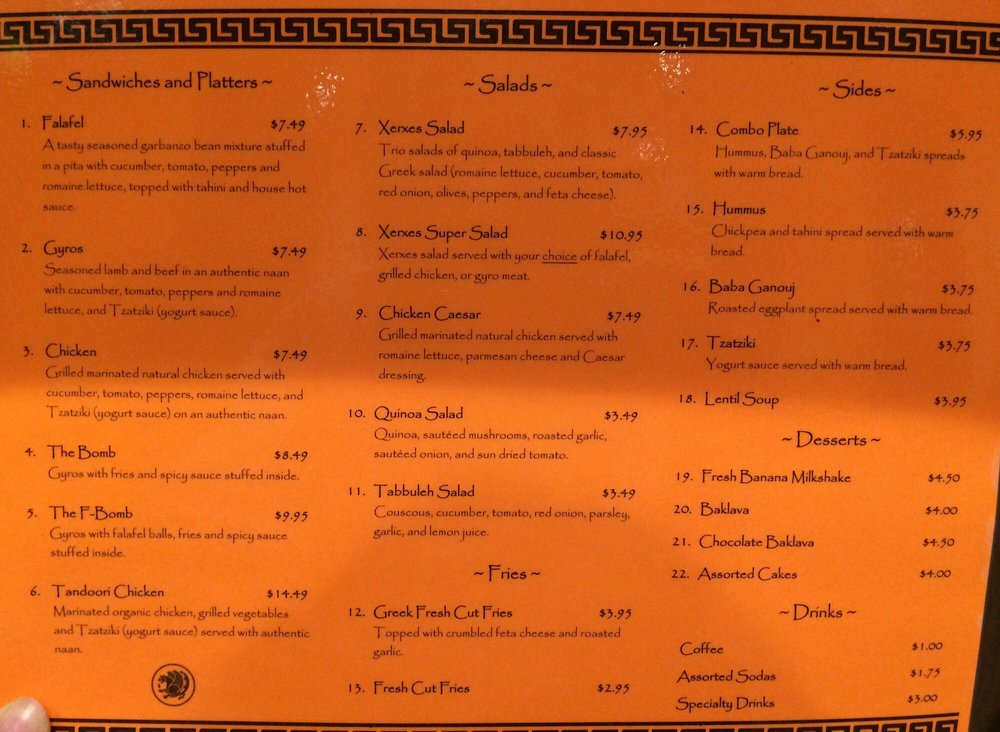 ~ Sandwiches and Platters ~
1. Falafel $7.49
A tasty seasoned garbanzo bean mixture stuffed
in a pita with cucumber, tomato, peppers and
romaine lettuce, topped with tahini and house hot
sauce.
2. Gyros $7.49
Seasoned lamb and beef in an authentic naan
with cucumber, tomato, peppers and romaine
lettuce, and Tzatziki (yogurt sauce).
3. Chicken $7.49
Grilled marinated natural chicken served with
cucumber, tomato, peppers, romaine lettuce, and
Tzatziki (yogurt sauce) on an authentic naan.
4. The Bomb $8.49
Gyros with fries and spicy sauce stuffed inside.
5. The F-Bomb $9.95
Gyros with falafel balls, fries and spicy sauce
stuffed inside.
6. Tandoori Chicken $14.49
Marinated organic chicken, grilled vegetables
and Tzatziki (yogurt sauce) served with authentic
naan.
~ Salads ~
7. Xerxes Salad $7.95
Trio salads of quinoa, tabbuleh, and classic
Greek salad (romaine lettuce, cucumber, tomato,
red onion, olives, peppers, and feta cheese).
8. Xerxes Super Salad $10.95
Xerxes salad served with your choice of falafel,
grilled chicken, or gyro meat.
9. Chicken Caesar $7.49
Grilled marinated natural chicken served with
romaine lettuce, parmesan cheese and Caesar
dressing.
10. Quinoa Salad $3.49
Quinoa, sautéed mushrooms, roasted garlic,
sautéed onion, and sun dried tomato.
11. Tabbuleh Salad $3.49
Couscous, cucumber, tomato, red onion, parsley,
garlic, and lemon juice.
~ Fries ~
12. Greek Fresh Cut Fries $3.95
Topped with crumbled feta cheese and roasted
garlic.
13. Fresh Cut Fries $2.95
~ Sides ~
14. Combo Plate $5.95
Hummus, Baba Ganouj, and Tzatziki spreads
with warm bread.
15. Hummus $3.75
Chickpea and tahini spread served with warm
bread.
16. Baba Ganouj $3.75
Roasted eggplant spread served with warm bread.
17. Tzatziki $3.75
Yogurt sauce served with warm bread.
18. Lentil Soup $3.95
~ Desserts ~
19. Fresh Banana Milkshake $4.50
20. Baklava $4.00
21. Chocolate Baklava $4.50
22. Assorted Cakes $4.00
~ Drinks ~
Coffee $1.00
Assorted Sodas $1.75
Specialty Drinks $3.00